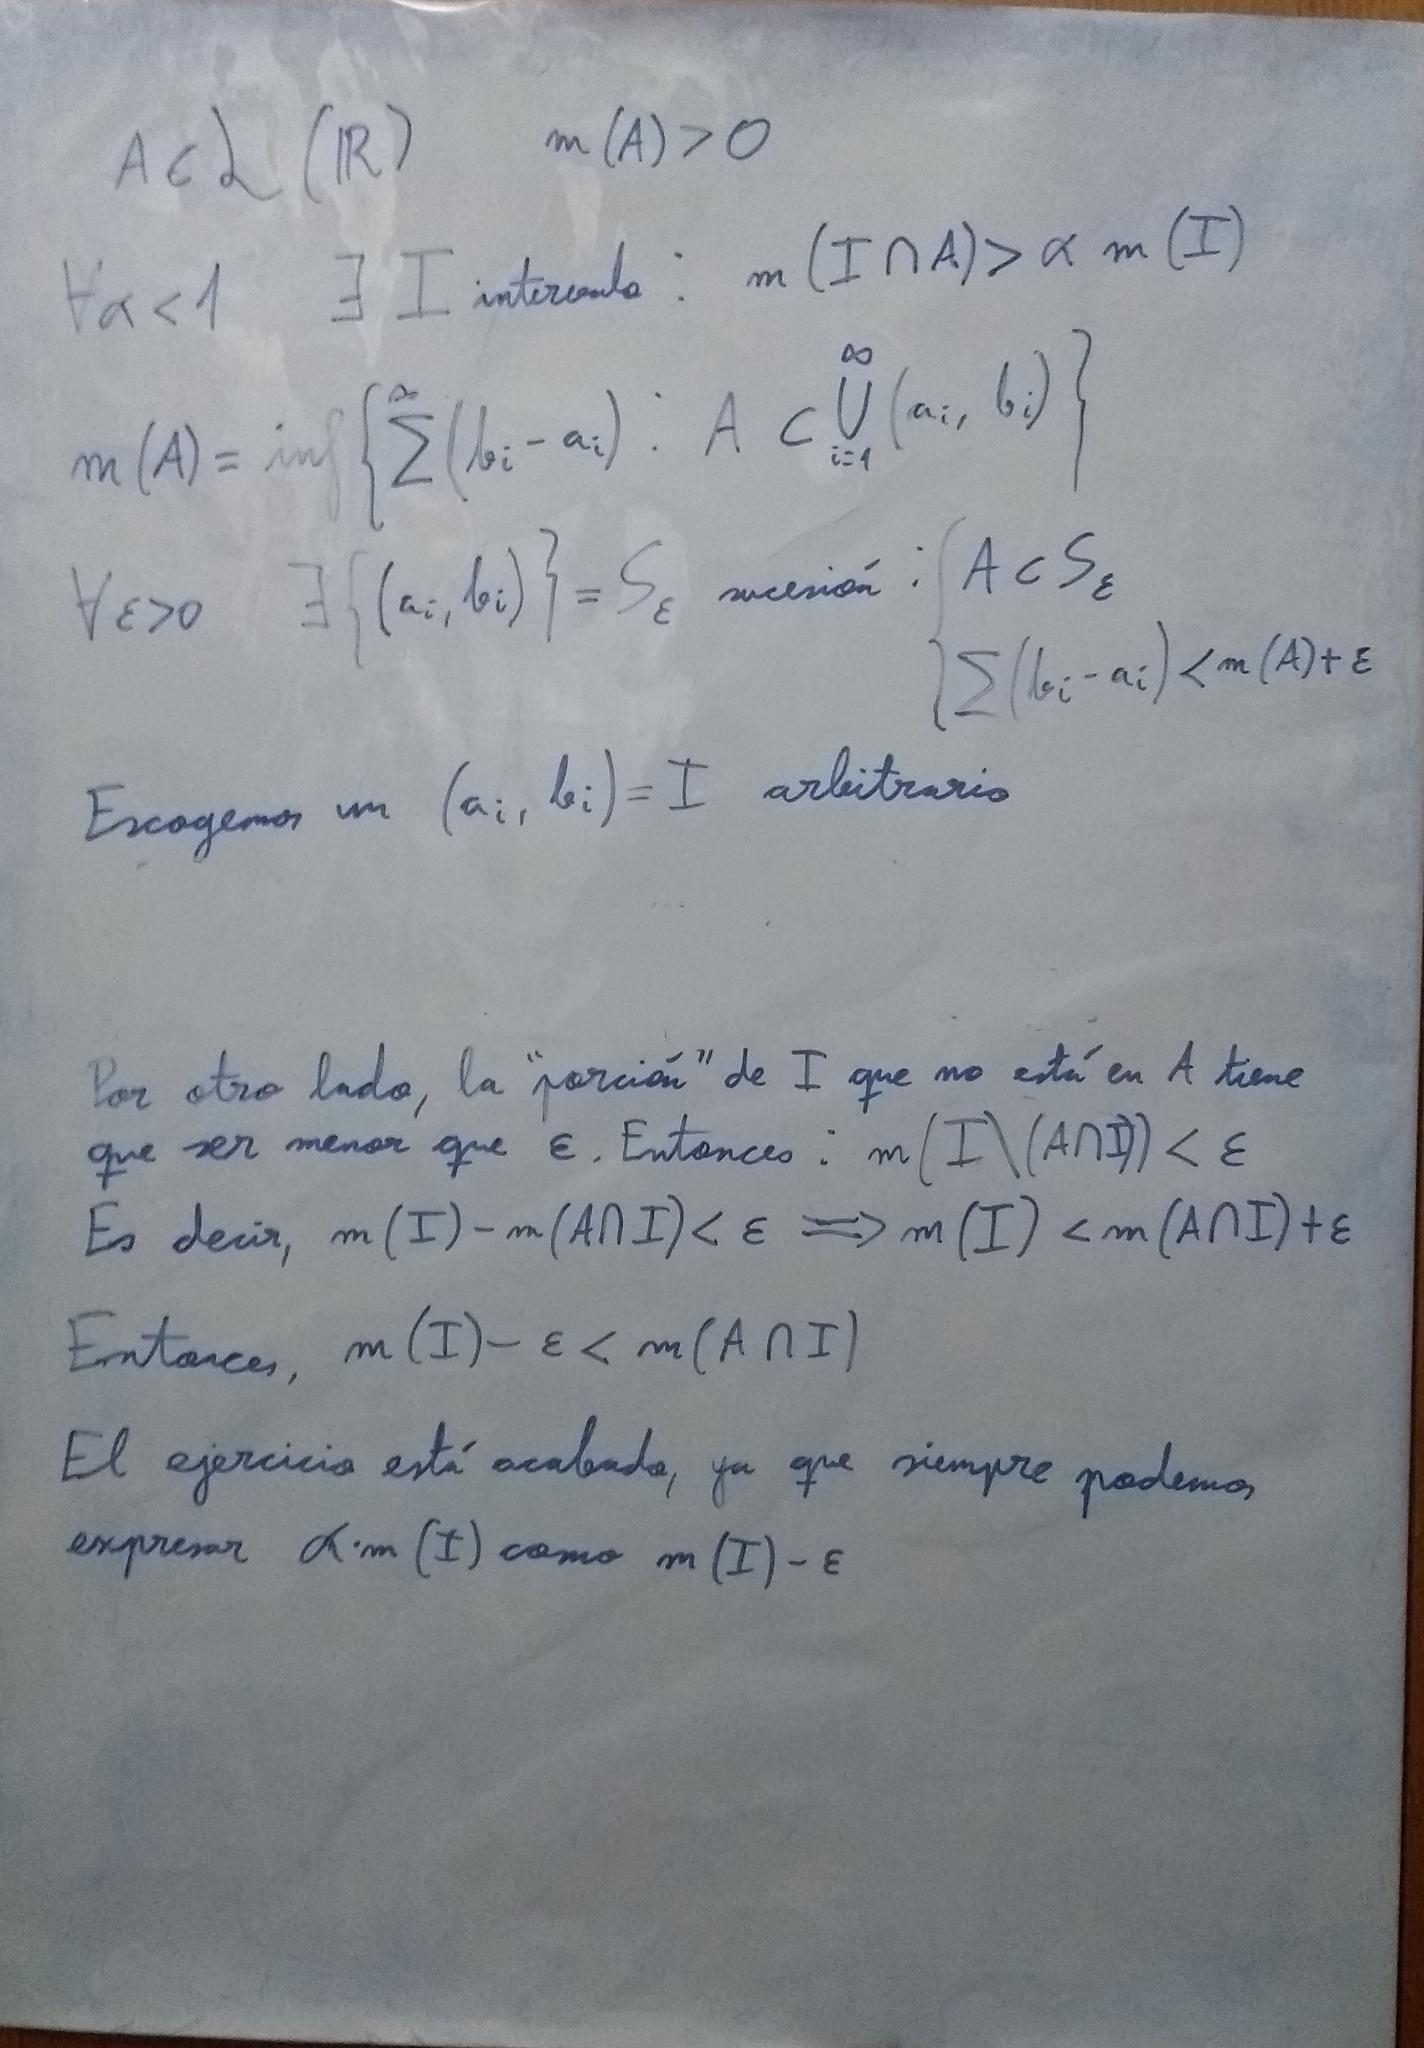 A ∈ L (ℝ) m(A) > 0
∀α < 1 ∃ I intervalo : m(I ∩ A) > α m(I)
m(A) = inf { ∑^∞ (bᵢ - aᵢ) : A ⊂ ⋃_{i=1}^∞ (aᵢ, bᵢ) }
∀ε>0 ∃ {(aᵢ, bᵢ)} = S_ε sucesión : { A ⊂ S_ε
∑(bᵢ - aᵢ) < m(A) + ε
Escogemos un (aᵢ, bᵢ) = I arbitrario
Por otro lado, la "porción" de I que no está en A tiene
que ser menor que ε. Entonces : m(I\(A∩I)) < ε
Es decir, m(I) - m(A∩I) < ε ⟹ m(I) < m(A∩I) + ε
Entonces, m(I) - ε < m(A ∩ I)
El ejercicio está acabado, ya que siempre podemos
expresar α·m(I) como m(I) - ε